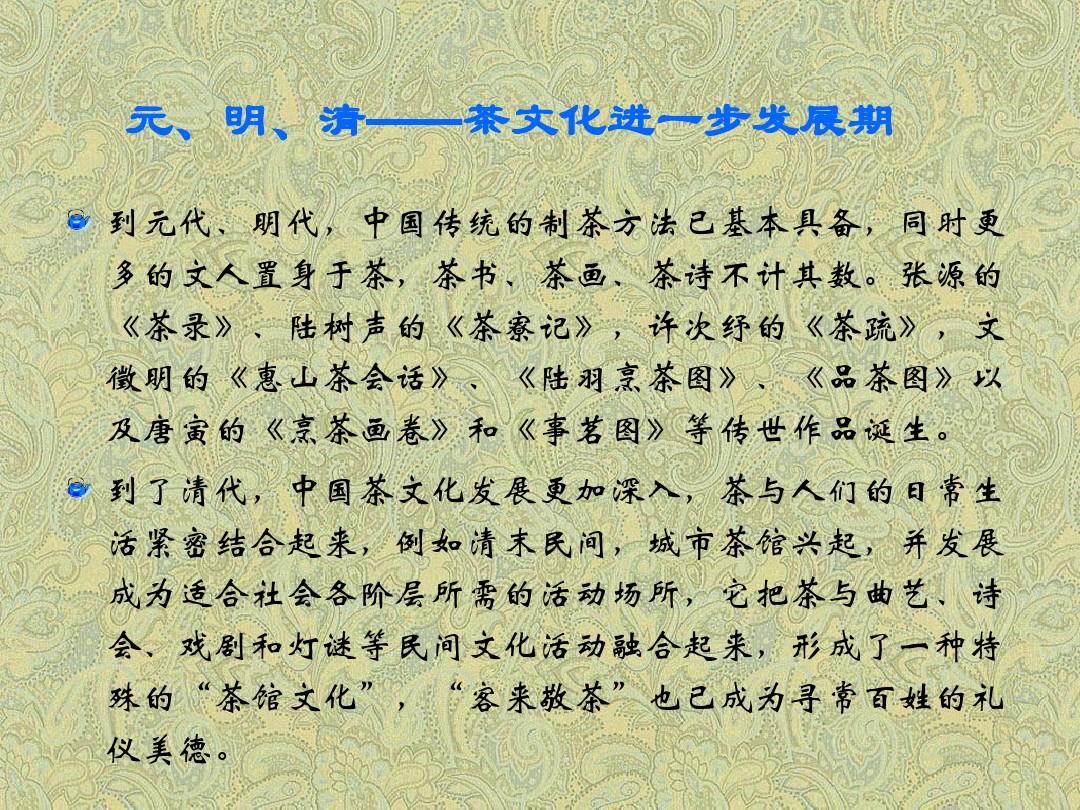 元、明、清——茶文化进一步发展期
到元代、明代，中国传统的制茶方法已基本具备，同时更
多的文人置身于茶，茶书、茶画、茶诗不计其数。张源的
《茶录》、陆树声的《茶寮记》，许次纾的《茶疏》，文
徵明的《惠山茶会话》、《陆羽烹茶图》、《品茶图》以
及唐寅的《烹茶画卷》和《事茗图》等传世作品诞生。
到了清代，中国茶文化发展更加深入，茶与人们的日常生
活紧密结合起来，例如清末民间，城市茶馆兴起，并发展
成为适合社会各阶层所需的活动场所，它把茶与曲艺、诗
会、戏剧和灯谜等民间文化活动融合起来，形成了一种特
殊的“茶馆文化”，“客来敬茶”也已成为寻常百姓的礼
仪美德。